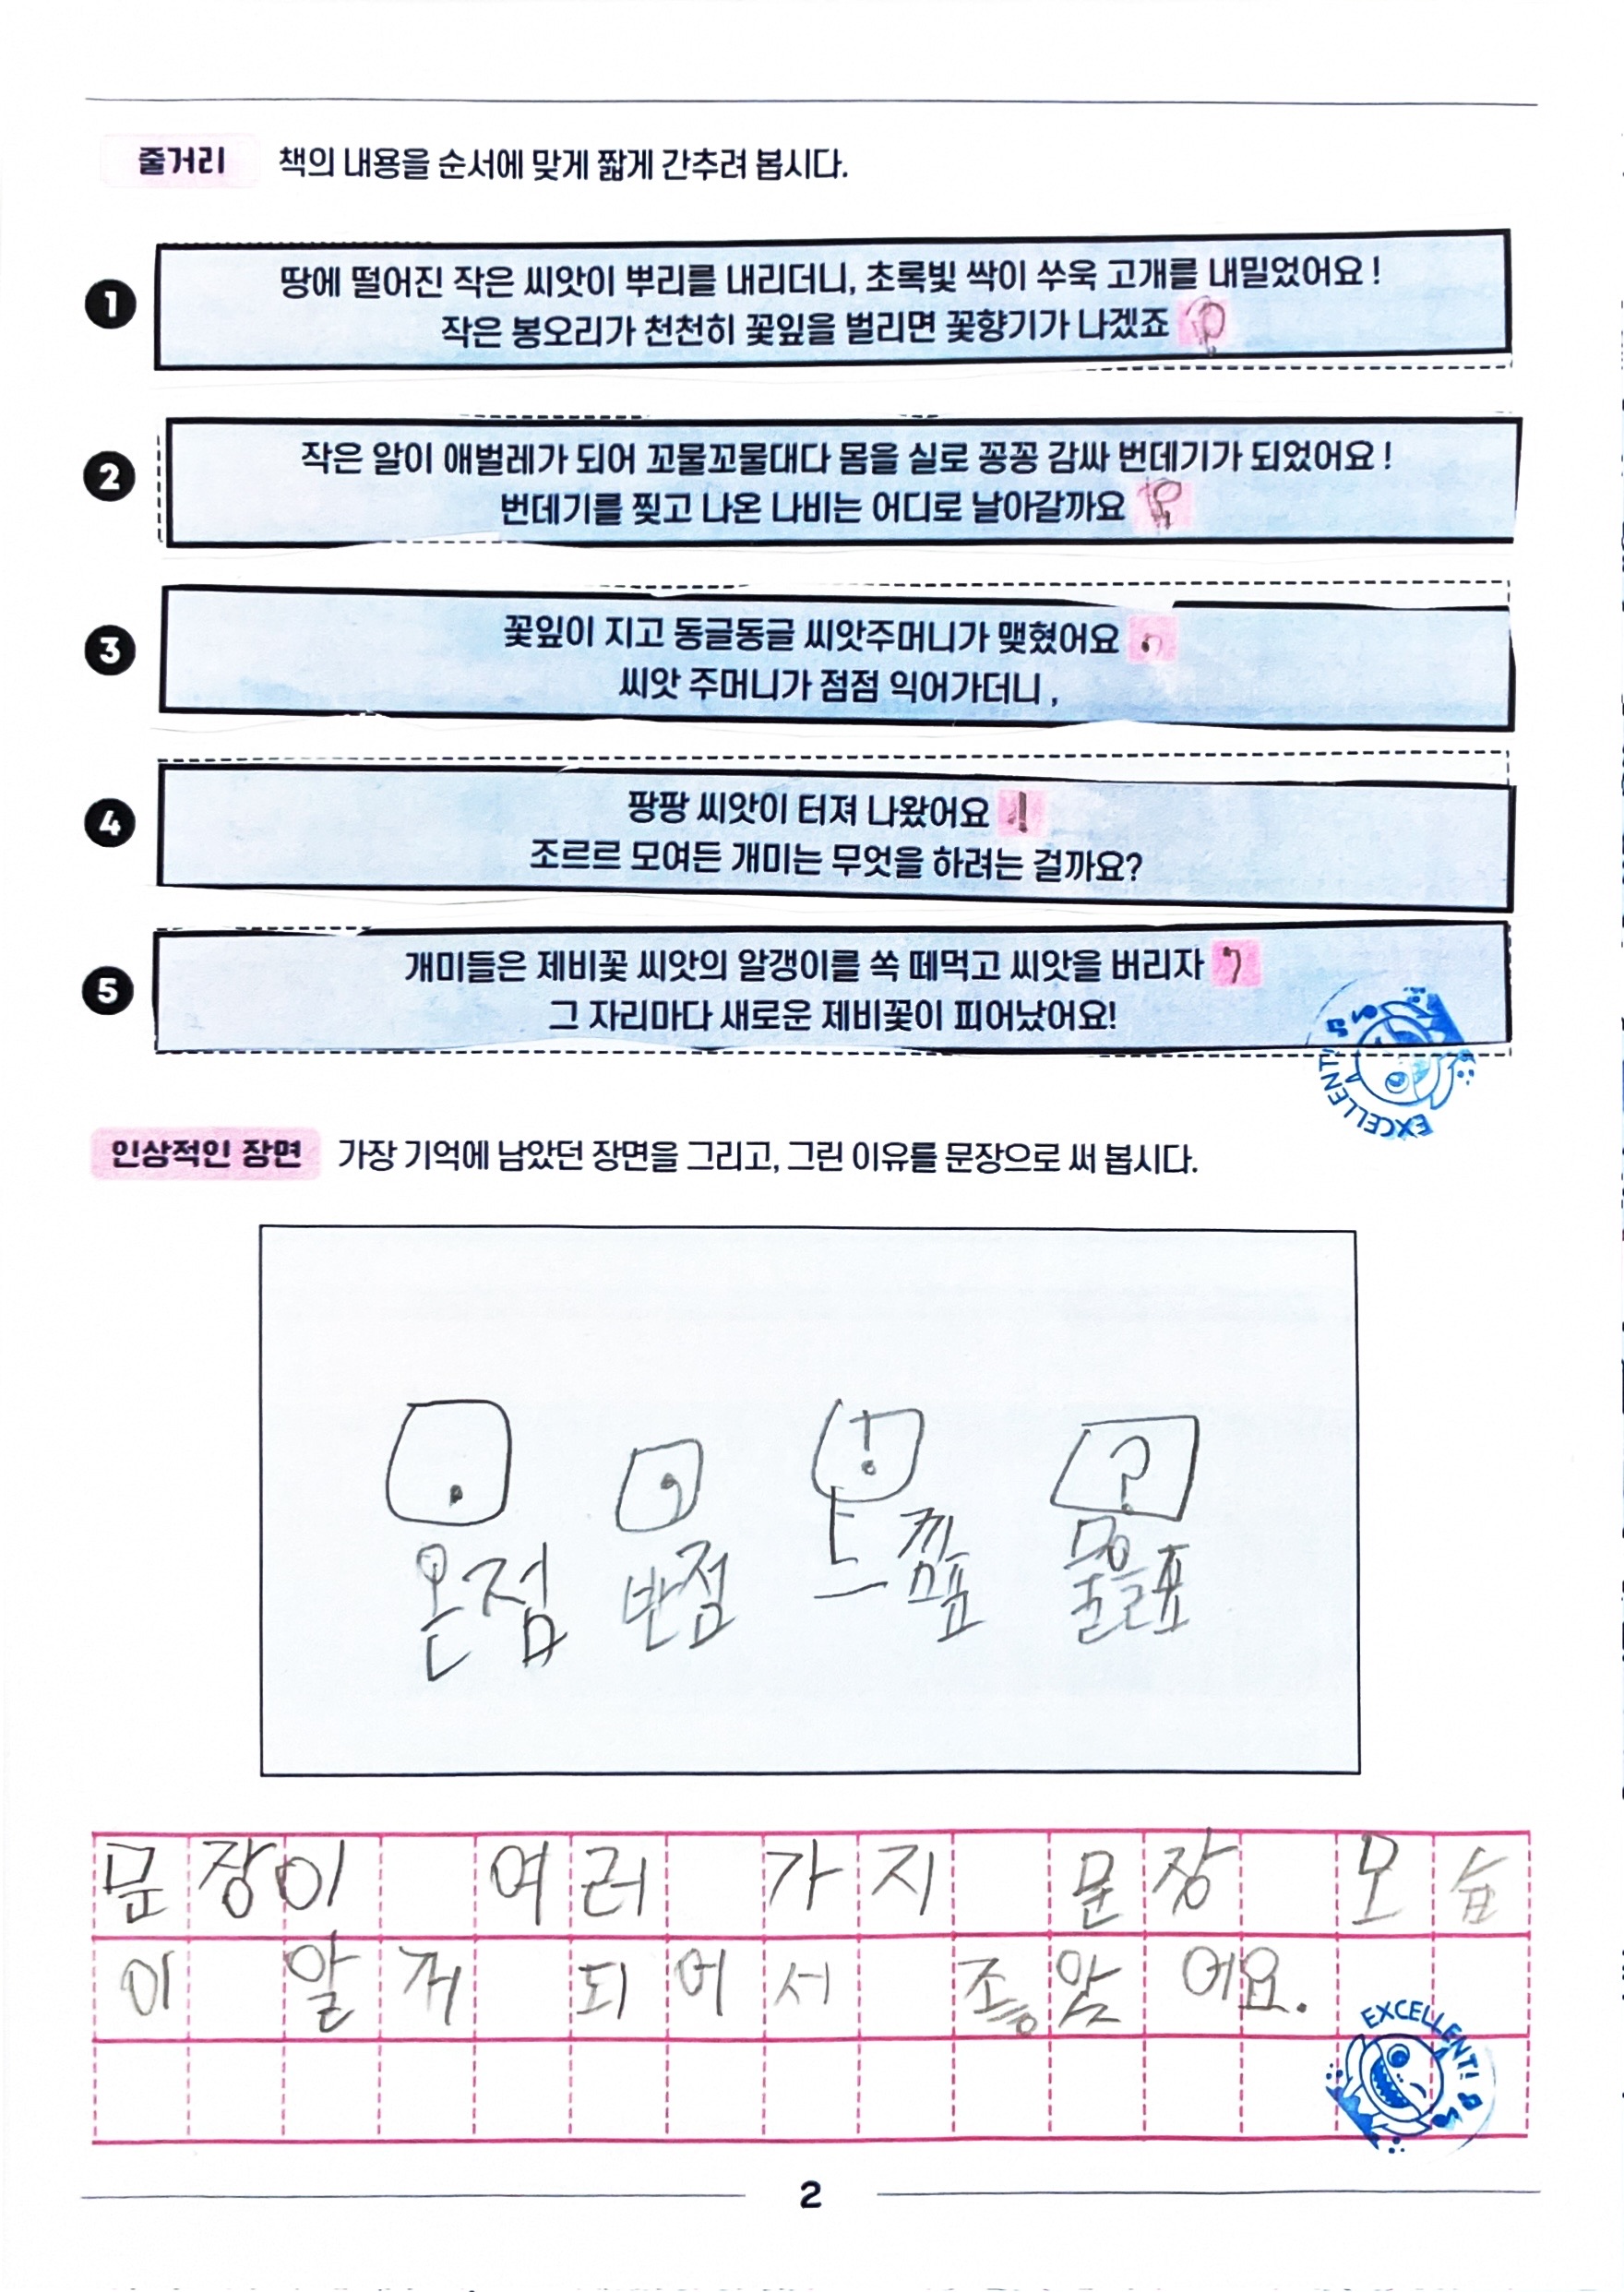 줄거리 책의 내용을 순서에 맞게 짧게 간추려 봅시다.
1 땅에 떨어진 작은 씨앗이 뿌리를 내리더니, 초록빛 싹이 쑤욱 고개를 내밀었어요!
작은 봉오리가 천천히 꽃잎을 벌리면 꽃향기가 나겠죠 ?
2 작은 알이 애벌레가 되어 꼬물꼬물대다 몸을 실로 꽁꽁 감싸 번데기가 되었어요!
번데기를 찢고 나온 나비는 어디로 날아갈까요 ?
3 꽃잎이 지고 동글동글 씨앗주머니가 맺혔어요 .
씨앗 주머니가 점점 익어가더니 ,
4 팡팡 씨앗이 터져 나왔어요 !
조르르 모여든 개미는 무엇을 하려는 걸까요?
5 개미들은 제비꽃 씨앗의 알갱이를 쏙 떼먹고 씨앗을 버리자 ,
그 자리마다 새로운 제비꽃이 피어났어요!
EXCELLENT!
인상적인 장면 가장 기억에 남았던 장면을 그리고, 그린 이유를 문장으로 써 봅시다.
. , ! ?
온점 반점 느낌표 물음표
문장이 여러 가지 문장 모습
이 알께 되어서 좋았어요.
EXCELLENT!
2